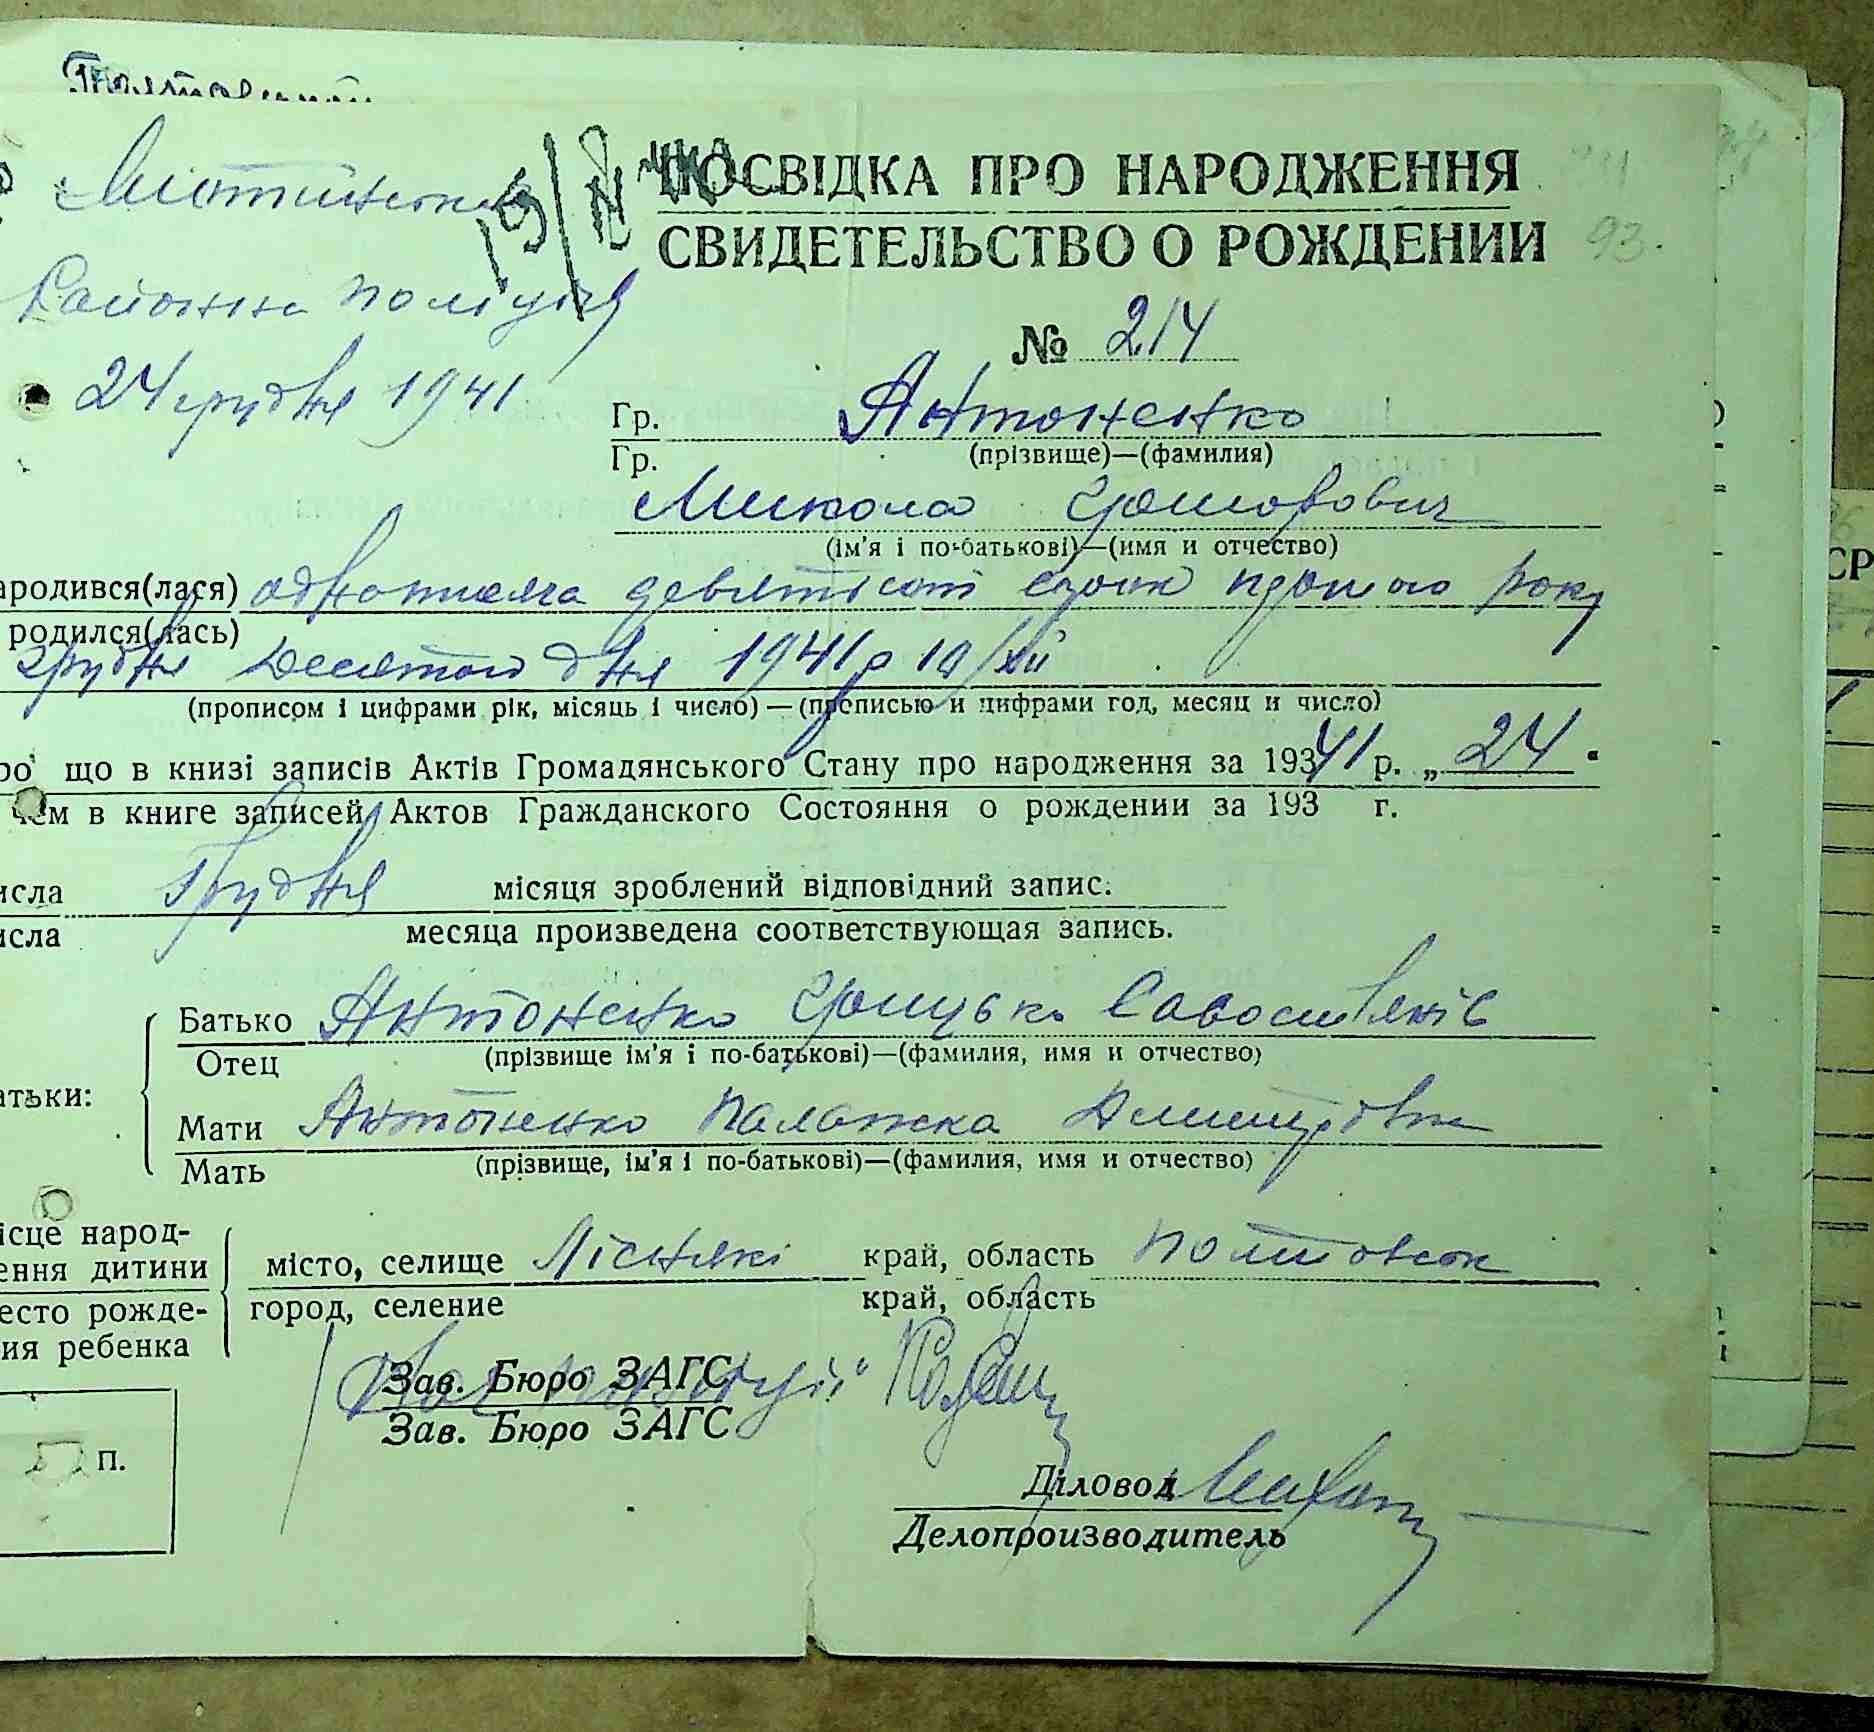 ПОСВІДКА ПРО НАРОДЖЕННЯ
СВИДЕТЕЛЬСТВО О РОЖДЕНИИ
93.
Районна поліція
24 грудня 1941
№ 214
Гр. Антоненко
Гр. (прізвище)—(фамилия)
Микола Григорович
(ім'я і по-батькові)—(имя и отчество)
ародився(лася) однотисяча девятьсот сорок першого року
родился(лась)
грудня десятого дня 1941 р 10/XII
(прописом і цифрами рік, місяць і число) — (прописью и цифрами год, месяц и число)
ро що в книзі записів Актів Громадянського Стану про народження за 19341 р. „ 24 "
чем в книге записей Актов Гражданского Состояния о рождении за 193 г.
исла Грудня місяця зроблений відповідний запис.
исла месяца произведена соответствующая запись.
Батько Антоненко Грицько Савостянів
Отец (прізвище ім'я і по-батькові)—(фамилия, имя и отчество)
атьки:
Мати Антоненко Палажка Дмитровна
Мать (прізвище, ім'я і по-батькові)—(фамилия, имя и отчество)
ісце народ-
ення дитини місто, селище Лісняки край, область Полтовськ
есто рожде- город, селение край, область
ия ребенка
Зав. Бюро ЗАГС
Зав. Бюро ЗАГС
П.
Діловод
Делопроизводитель